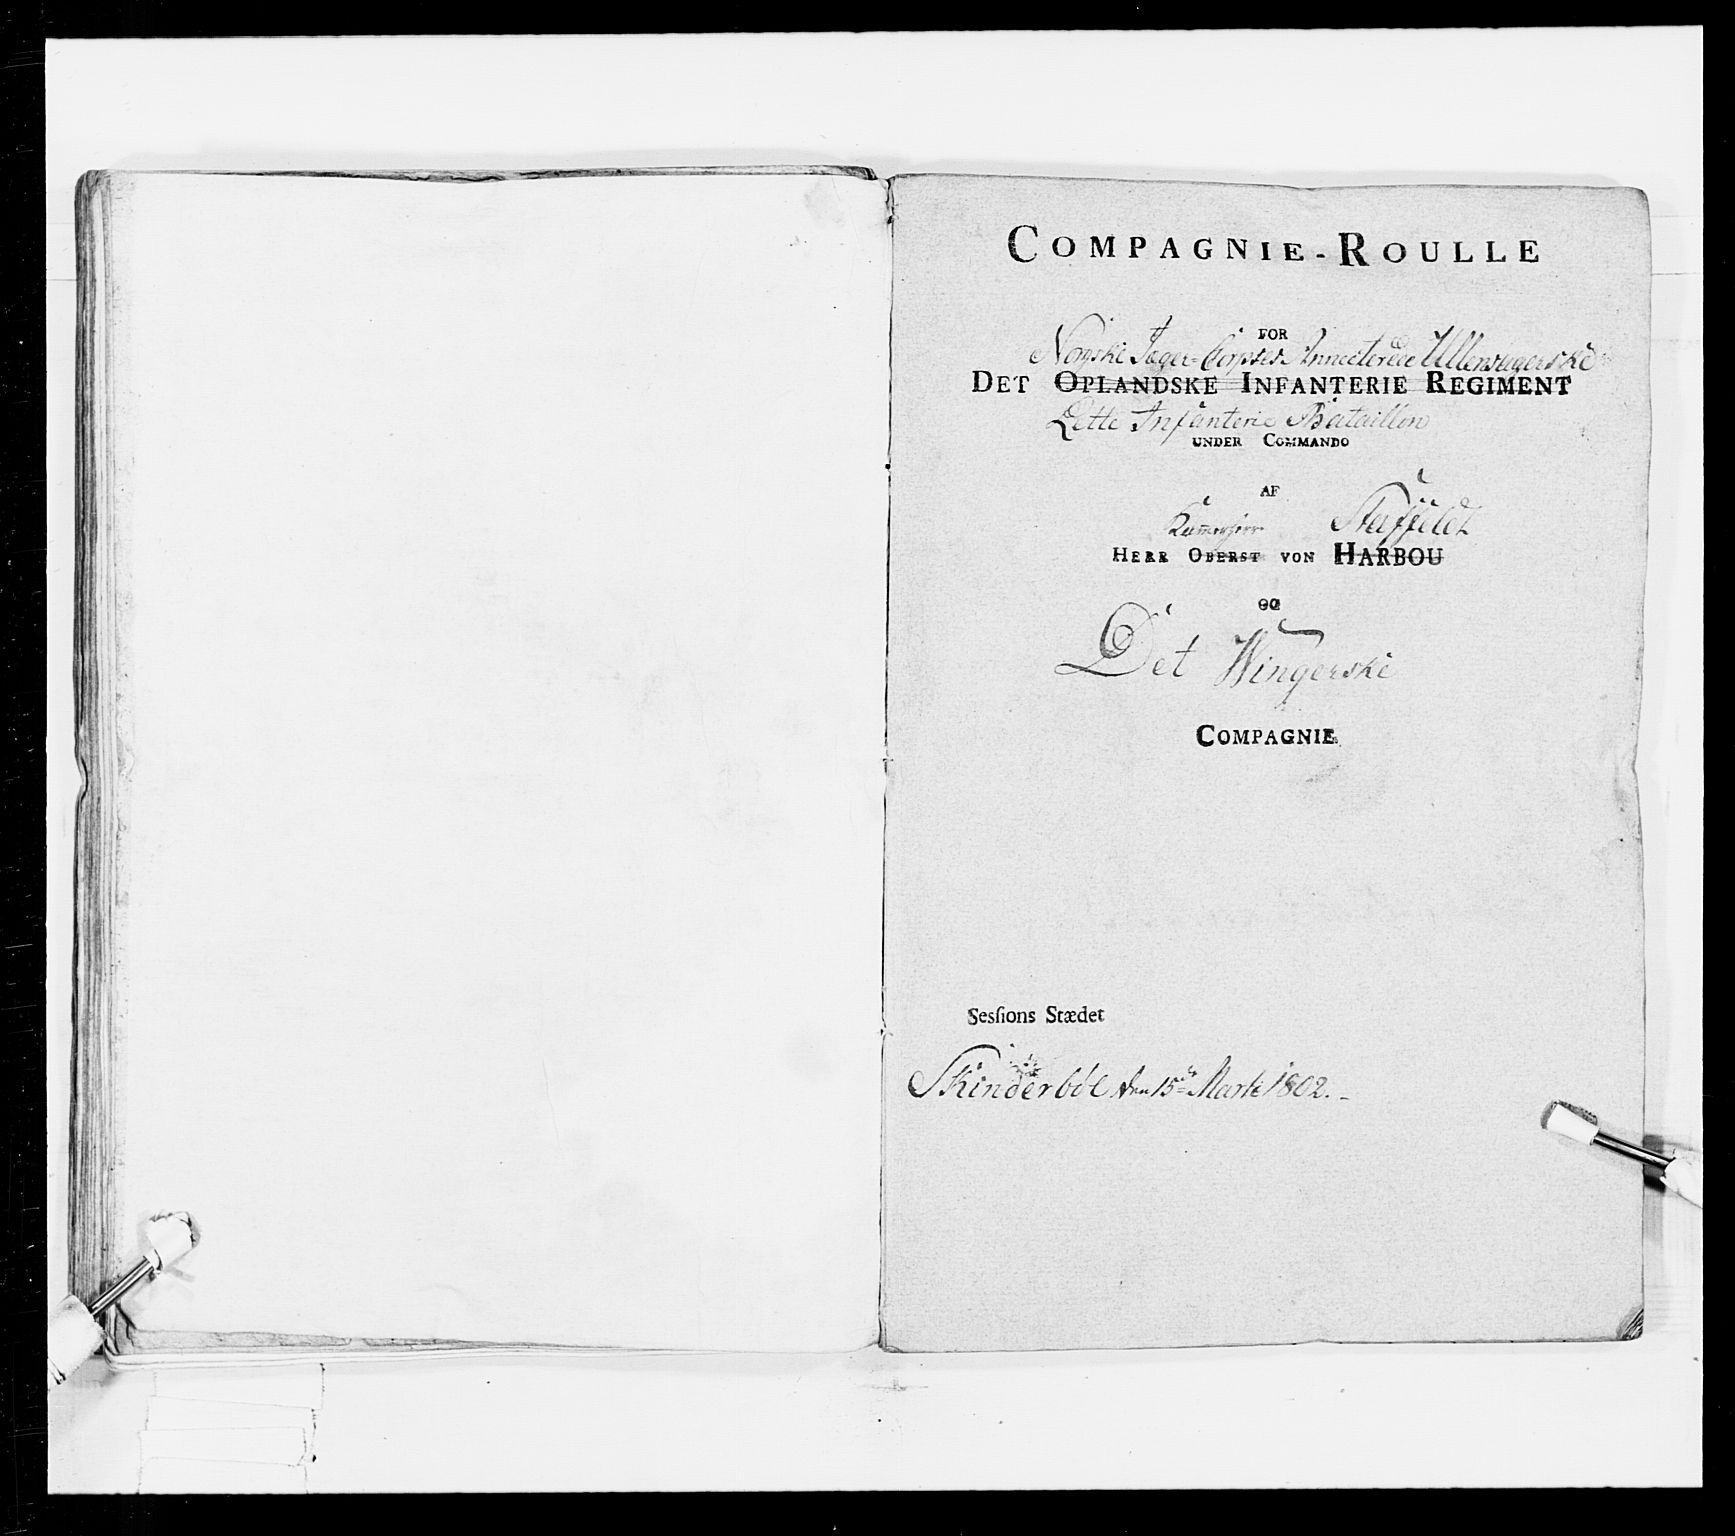 COMPAGNIE-ROULLE
FOR
Norske Jæger-Corpses Annecterede Ullensagerske
DET OPLANDSKE INFANTERIE REGIMENT
Lette Infanterie Bataillon
UNDER COMMANDO
AF
Kammerherr Staffeldt
HERR OBERST VON HARBOU
OG
Det Wingerske
COMPAGNIE.
Sesſions Stædet
Skinderböl den 15de Marti 1802.